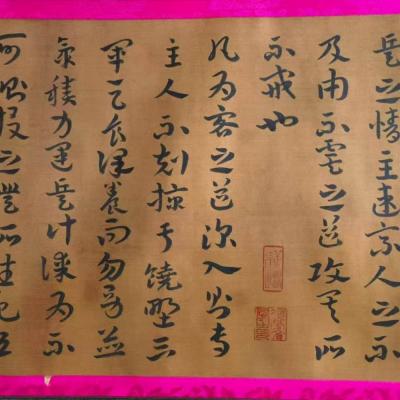 兵之情主速乘人之不
及由不虞之道攻其所
不戒也
凡為客之道深入則專
主人不剋掠于饒野三
軍足食謹養而勿勞并
氣積力運兵計謀為不
可測投之無所往死且